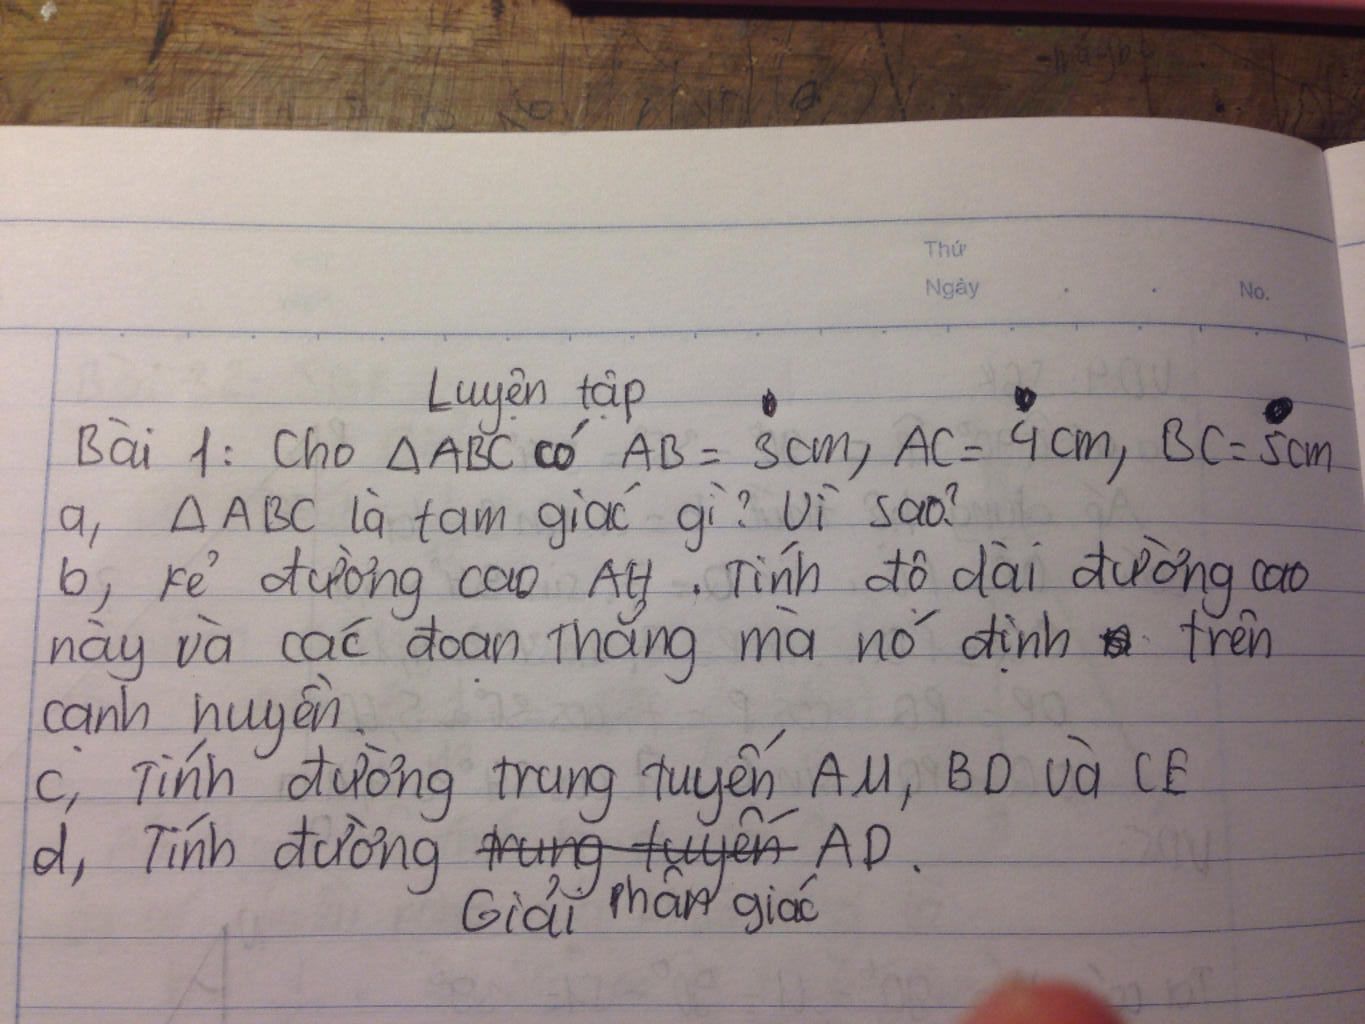 Thứ
Ngày
No.
Luyện tập
Bài 1: Cho △ABC có AB = 3cm, AC = 4cm, BC = 5cm
a, △ABC là tam giác gì? Vì sao?
b, Kẻ đường cao AH. Tính độ dài đường cao
này và các đoạn thẳng mà nó định trên
cạnh huyền.
c, Tính đường trung tuyến AM, BD và CE
d, Tính đường trung tuyến AD.
phân giác
Giải